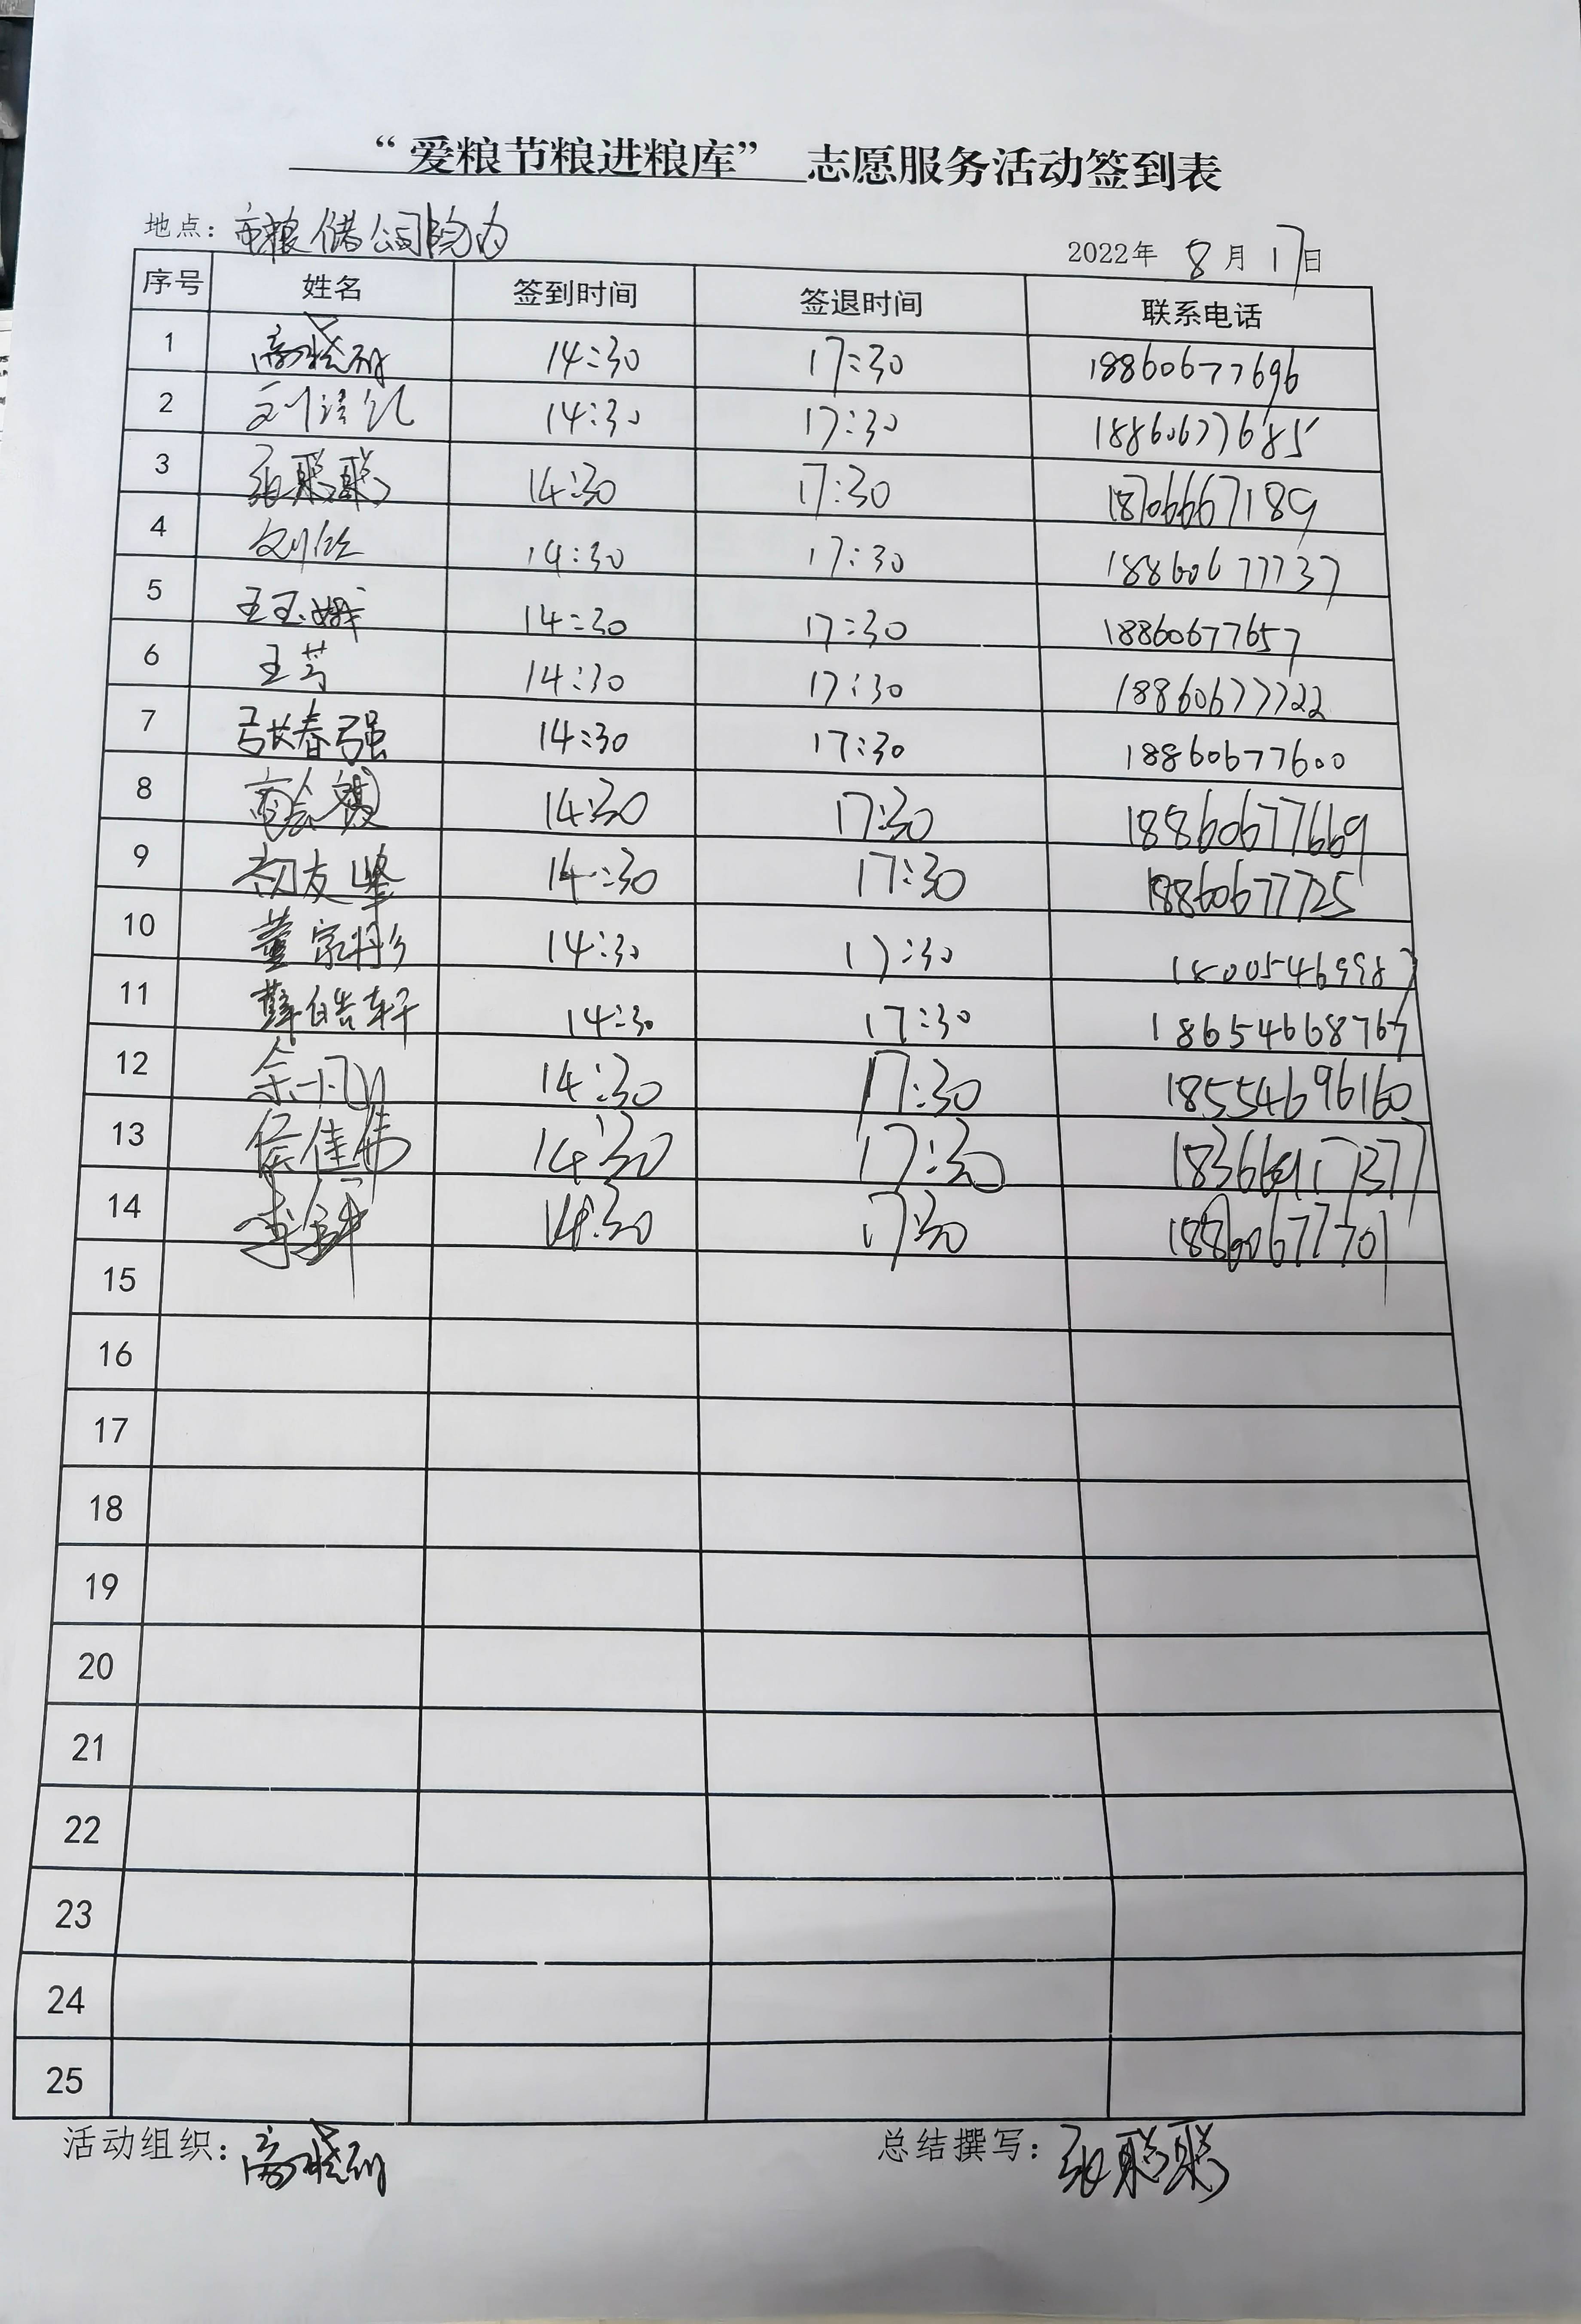 “爱粮节粮进粮库” 志愿服务活动签到表
地点：市粮储公司院内 2022年 8月17日
序号 姓名 签到时间 签退时间 联系电话
1 14:30 17:30 18860677696
2 刘 14:30 17:30 18860677685
3 张聪聪 14:30 17:30 18706667189
4 刘 14:30 17:30 18860677737
5 王玉娥 14:30 17:30 18860677657
6 王芳 14:30 17:30 18860677722
7 张春强 14:30 17:30 18860677600
8 14:30 17:30 18860677669
9 初友峰 14:30 17:30 18860677725
10 董家彤 14:30 17:30 18005469987
11 薛皓轩 14:30 17:30 18654668767
12 14:30 17:30 18554696160
13 侯佳伟 14:30 17:30
14 李 14:30 17:30 18860677701
15
16
17
18
19
20
21
22
23
24
25
活动组织： 总结撰写：张聪聪